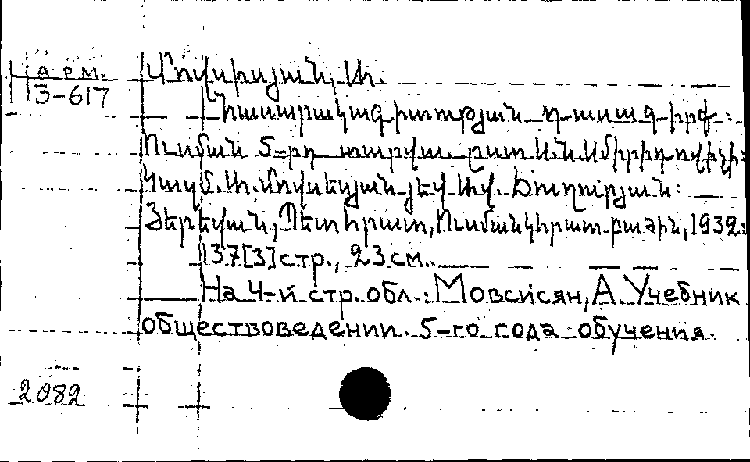 Арм.
3-617
Մովսիսյան, Ա.
Հասարակագիտության դասագիրք:
Ուսման 5-րդ տարվա. ըստ
Կազմ. Ա. Մովսեսյան յեվ Ավ.
Յերեվան, Պետհրատ, Ուսմանկհրատ-բաժին, 1932:
137[3] стр., 23 см.
На 4-й стр. обл.: Мовсисян, А. Учебник
обществоведении. 5-го года обучения.
2082